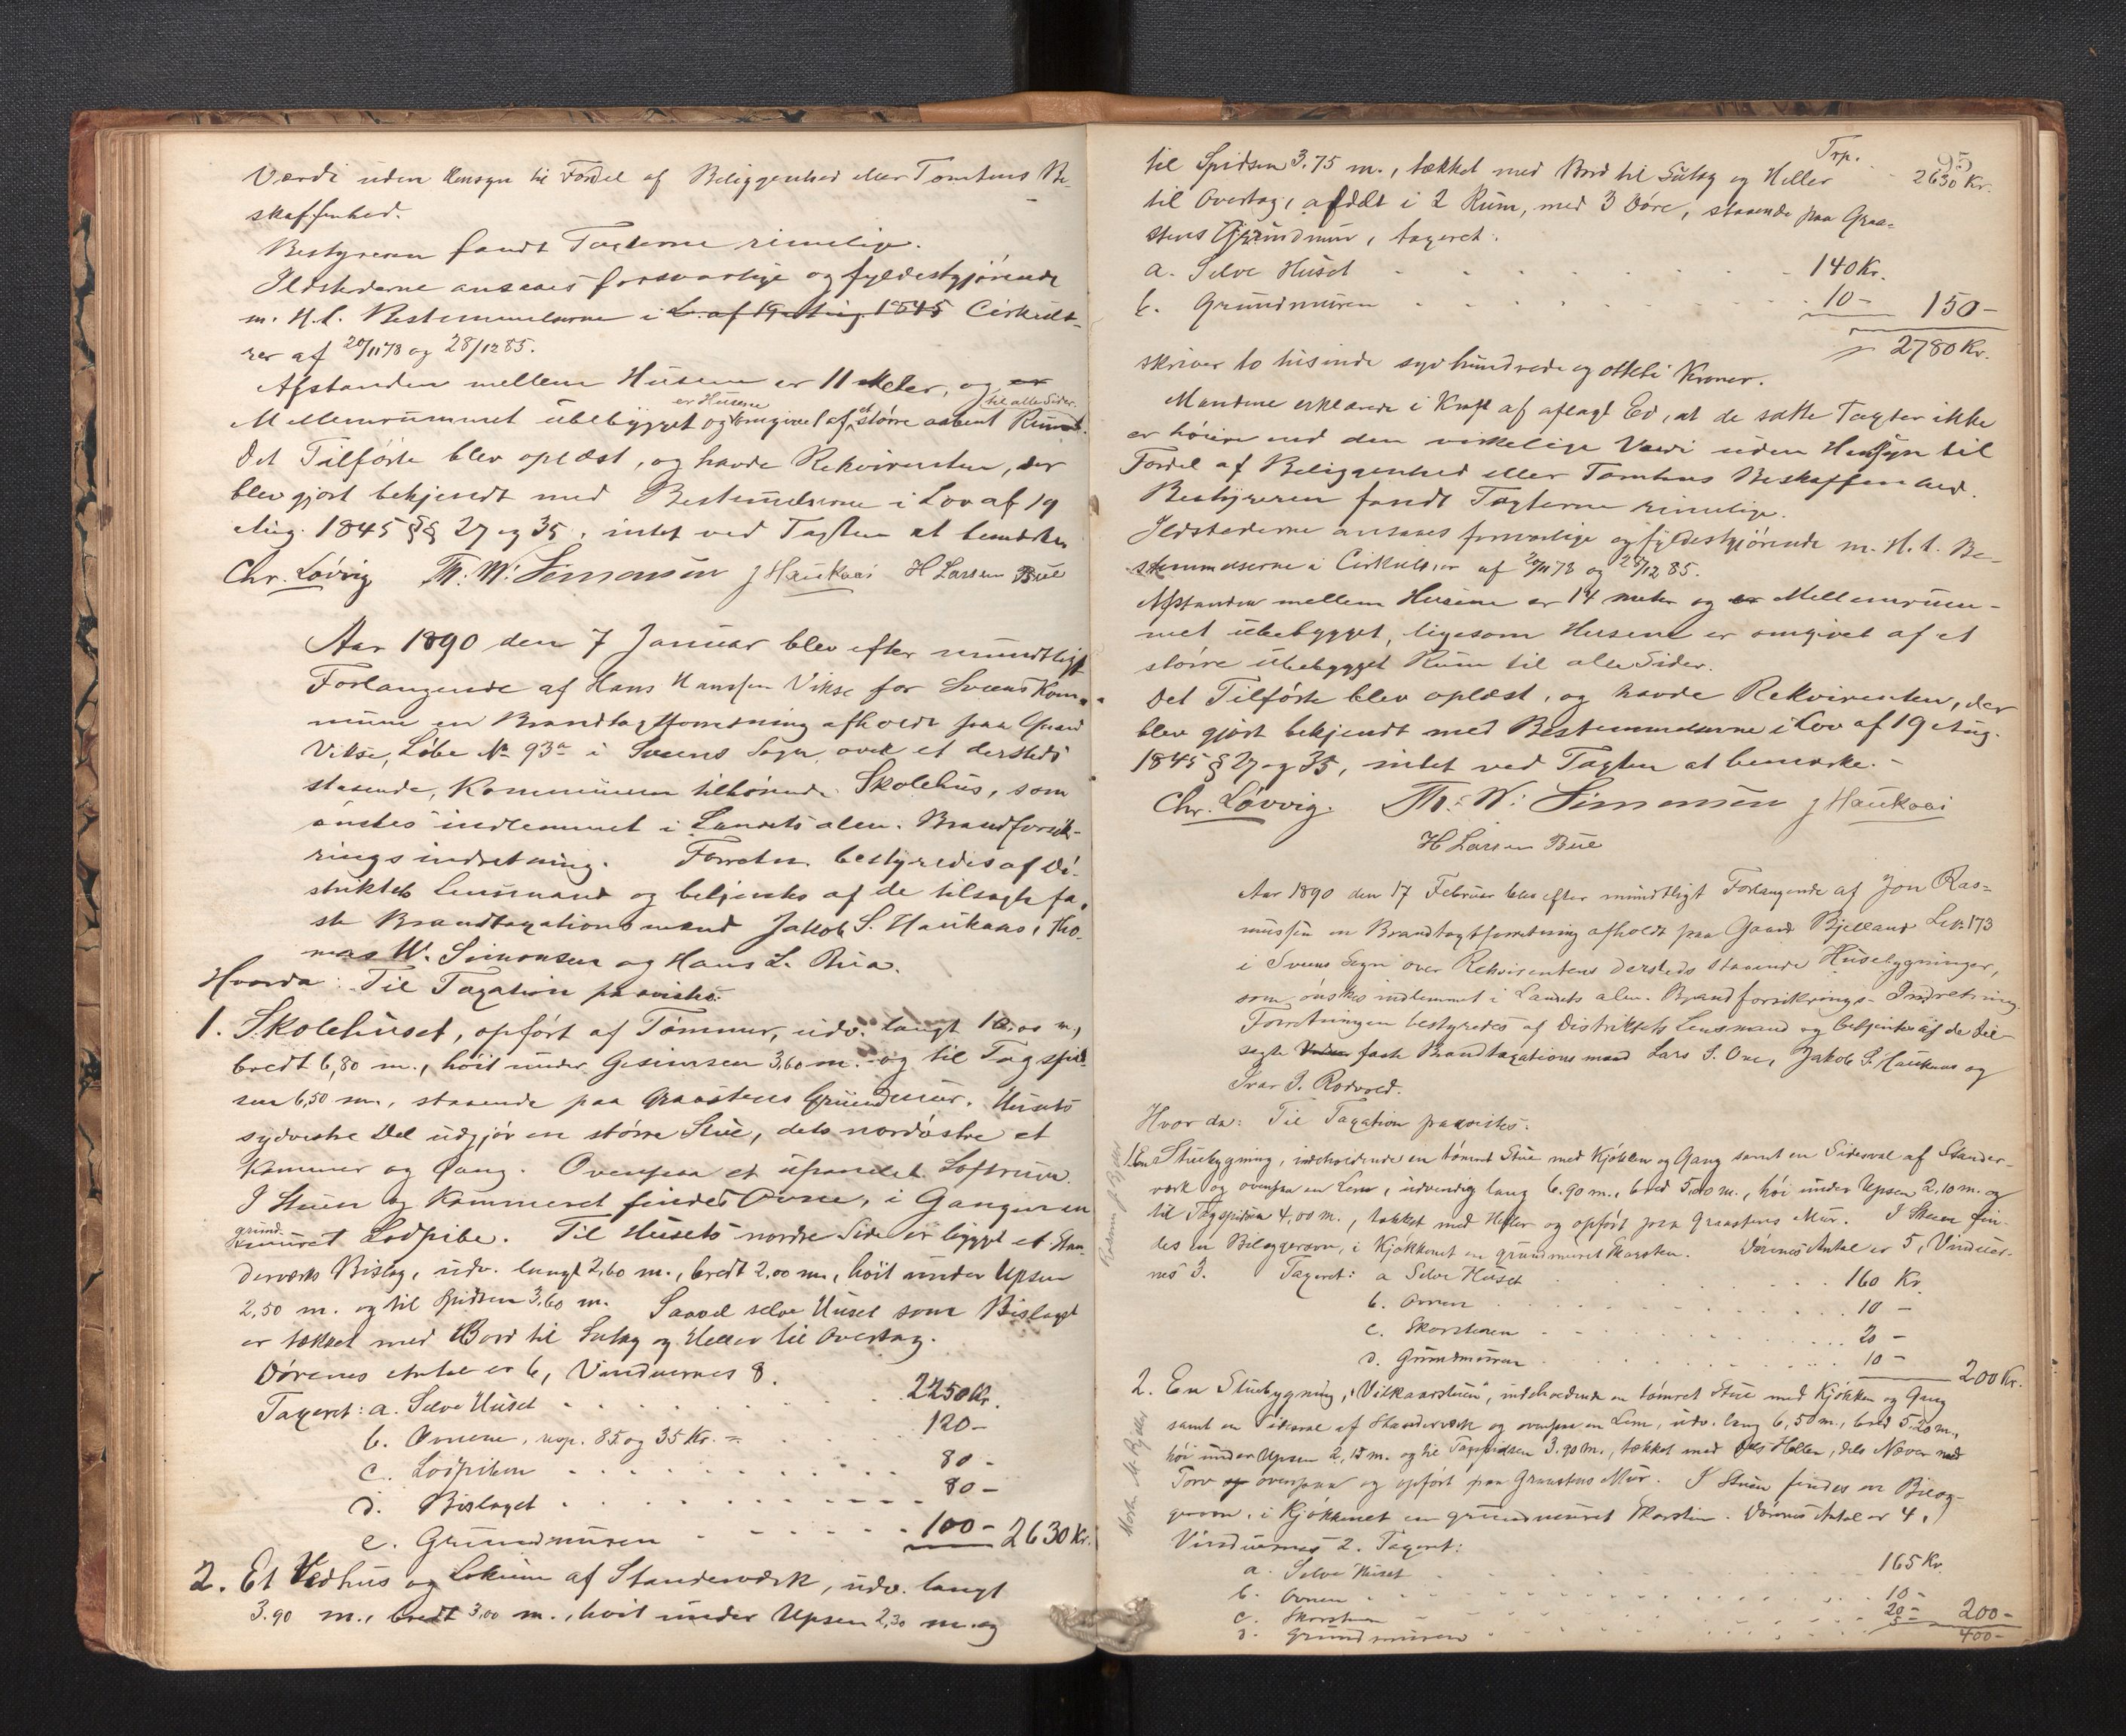 Værdi uden Hensyn til Fordel af Beliggenhed eller Tomtens Be-
skaffenhed.
Bestyreren fandt Taxterne rimelige.
Ildstederne ansaaes forsvarlige og fyldestgjørende
m. H. t. Bestemmelserne i L. af 19 Aug. 1845 Cirkulæ-
rer af 20/11 78 og 28/12 85.
Afstanden mellem Husene er 11 Meter, og er
er Husene til alle Sider.
Mellemrummet ubebygget og omgivet af et større aabent Rum.
Det Tilførte blev oplæst, og havde Rekvirenten, der
blev gjort bekjendt med Bestemmelserne i Lov af 19
Aug. 1845 §§ 27 og 35, intet ved Taxten at bemærke
Chr. Løvvig Th. W. Simonsen J Haukaas H Larsen Bue
Aar 1890 den 7 Januar blev efter mundtligt
Forlangende af Hans Hansen Vikse for Sveens Kom-
mune en Brandtaxtforretning afholdt paa Gaard
Vikse, Løbe No 93a i Sveens Sogn over et dersteds
staaende, Kommunen tilhørende Skolehus, som
ønskes indlemmet i Landets alm. Brandforsik-
ringsindretning. Forretn. bestyredes af Di-
striktets Lensmand og betjentes af de tilsagte fa-
ste Brandtaxationsmænd Jakob S. Haukaas, Tho-
mas W. Simonsen og Hans L. Bua.
Hvorda: Til Taxation paavistes:
1. Skolehuset, opført af Tømmer, udv. langt 10.00 m,
bredt 6,80 m., høit under Gesimsen 3,60 m. og til Tagspid-
sen 6,50 m., staaende paa Graastens Grundmur. Husets
sydvestre Del udgjør en større Stue, dets nordøstre et
Kammer og Gang. Ovenpaa et upanelet Loftsrum.
I Stuen og Kammeret findes Ovne, i Gangen en
grund-
muret Lodpibe. Til Husets nordre Side er bygget et Stan-
derværks Bislag, udv. langt 2,60 m., bredt 2,00 m., høit under Upsen
2,50 m. og til Spidsen 3,60 m. Saavel selve Huset som Bislaget
er tækket med Bord til Sutag og Heller til Overtag.
Dørenes Antal er 6, Vinduernes 8.
Taxeret: a. Selve Huset 2250 Kr.
b. Ovnene, resp. 85 og 35 Kr. = 120 -
c. Lodpiben 80 -
d. Bislaget 80 -
e. Grundmuren 100 - 2630 Kr.
2. Et Vedhus og Lokum af Standerværk, udv. langt
3.90 m., bredt 3,00 m., høit under Upsen 2,30 m. og
95
Trp. 2630 Kr.
til Spidsen 3.75 m., tækket med Bord til Sutag og Heller
til Overtag, afdelt i 2 Rum, med 3 Døre, staaende paa Graa-
stens Grundmur, taxeret:
a. Selve Huset 140 Kr.
b. Grundmuren 10 - 150 -
2780 Kr.
skriver to tusinde syv hundrede og otteti Kroner.
Mændene erklærede i Kraft af aflagt Ed, at de satte Taxter ikke
er høiere end den virkelige Værdi uden Hensyn til
Fordel af Beliggenhed eller Tomtens Beskaffenhed.
Bestyreren fandt Taxterne rimelige.
Ildstederne ansaaes forsvarlige og fyldestgjørende m. H. t. Be-
stemmelserne i Cirkulærer af 20/11 78 og 28/12 85.
Afstanden mellem Husene er 14 meter og er Mellemrum-
met ubebygget, ligesom Husene er omgivet af et
større ubebygget Rum til alle Sider.
Det Tilførte blev oplæst, og havde Rekvirenten, der
blev gjort bekjendt med Bestemmelserne i Lov af 19 Aug.
1845 § 27 og 35, intet ved Taxten at bemærke. -
Chr. Løvvig. Th. W. Simonsen J Haukaas
H Larsen Bue
Aar 1890 den 17 Februar blev efter mundtligt Forlangende af Jon Ras-
mussen en Brandtaxtforretning afholdt paa Gaard Bjelland L.No 173
i Sveens Sogn over Rekvirentens dersteds staaende Husebygninger,
som ønskes indlemmet i Landets alm. Brandforsikrings-Indretning.
Forretningen bestyredes af Distriktets Lensmand og betjentes af de til-
sagte faste Brandtaxationsmænd Lars S. Ove, Jakob S. Haukaas og
Ivar J. Rodvold.
Hvor da: Til Taxation paavistes:
1. En Stuebygning, indeholdende en tømret Stue med Kjøkken og Gang samt en Sidesval af Stander-
værk og ovenpaa en Lem, udvendig lang 6.90 m., bred 5,20 m., høi under Upsen 2,10 m. og
til Tagspidsen 4,00 m., tækket med Heller og opført paa Graastens Mur. I Stuen fin-
des en Bilæggerovn, i Kjøkkenet en grundmuret Skorsten. Dørenes Antal er 5, Vinduer-
nes 3. Taxeret: a Selve Huset 160 Kr.
b. Ovnen 10 -
c. Skorstenen 20 -
d. Grundmuren 10 - 200 Kr.
2. En Stuebygning, "Vilkaarsstuen", indeholdende en tømret Stue med Kjøkken og Gang
samt en Sidesval af Standerværk og ovenpaa en Lem, udv. lang 6,50 m., bred 5,20 m.,
høi under Upsen 2,15 m. og til Tagspidsen 3.90 m., tækket med dels Heller, dels Næver med
Torv ovenpaa og opført paa Graastens Mur. I Stuen findes en Bilæg-
gerovn, i Kjøkkenet en grundmuret Skorsten. Dørenes Antal er 4,
Vinduernes 2. Taxeret:
a. Selve Huset 165 Kr.
b. Ovnen 10 -
c. Skorstenen 20 - 200 -
d. Grundmuren 5 - 400 -